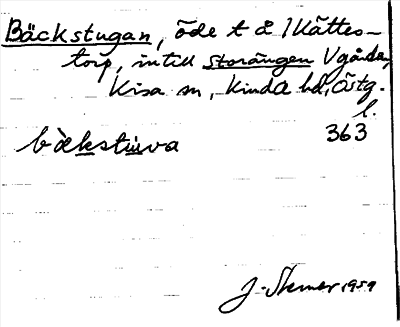 Bäckstugan, öde t å 1 Kättes-
torp, intill Storängen Vgården,
Kisa sn, Kinda hd, Östg.
l.
363
bàkstuva
J. Stemer 1959